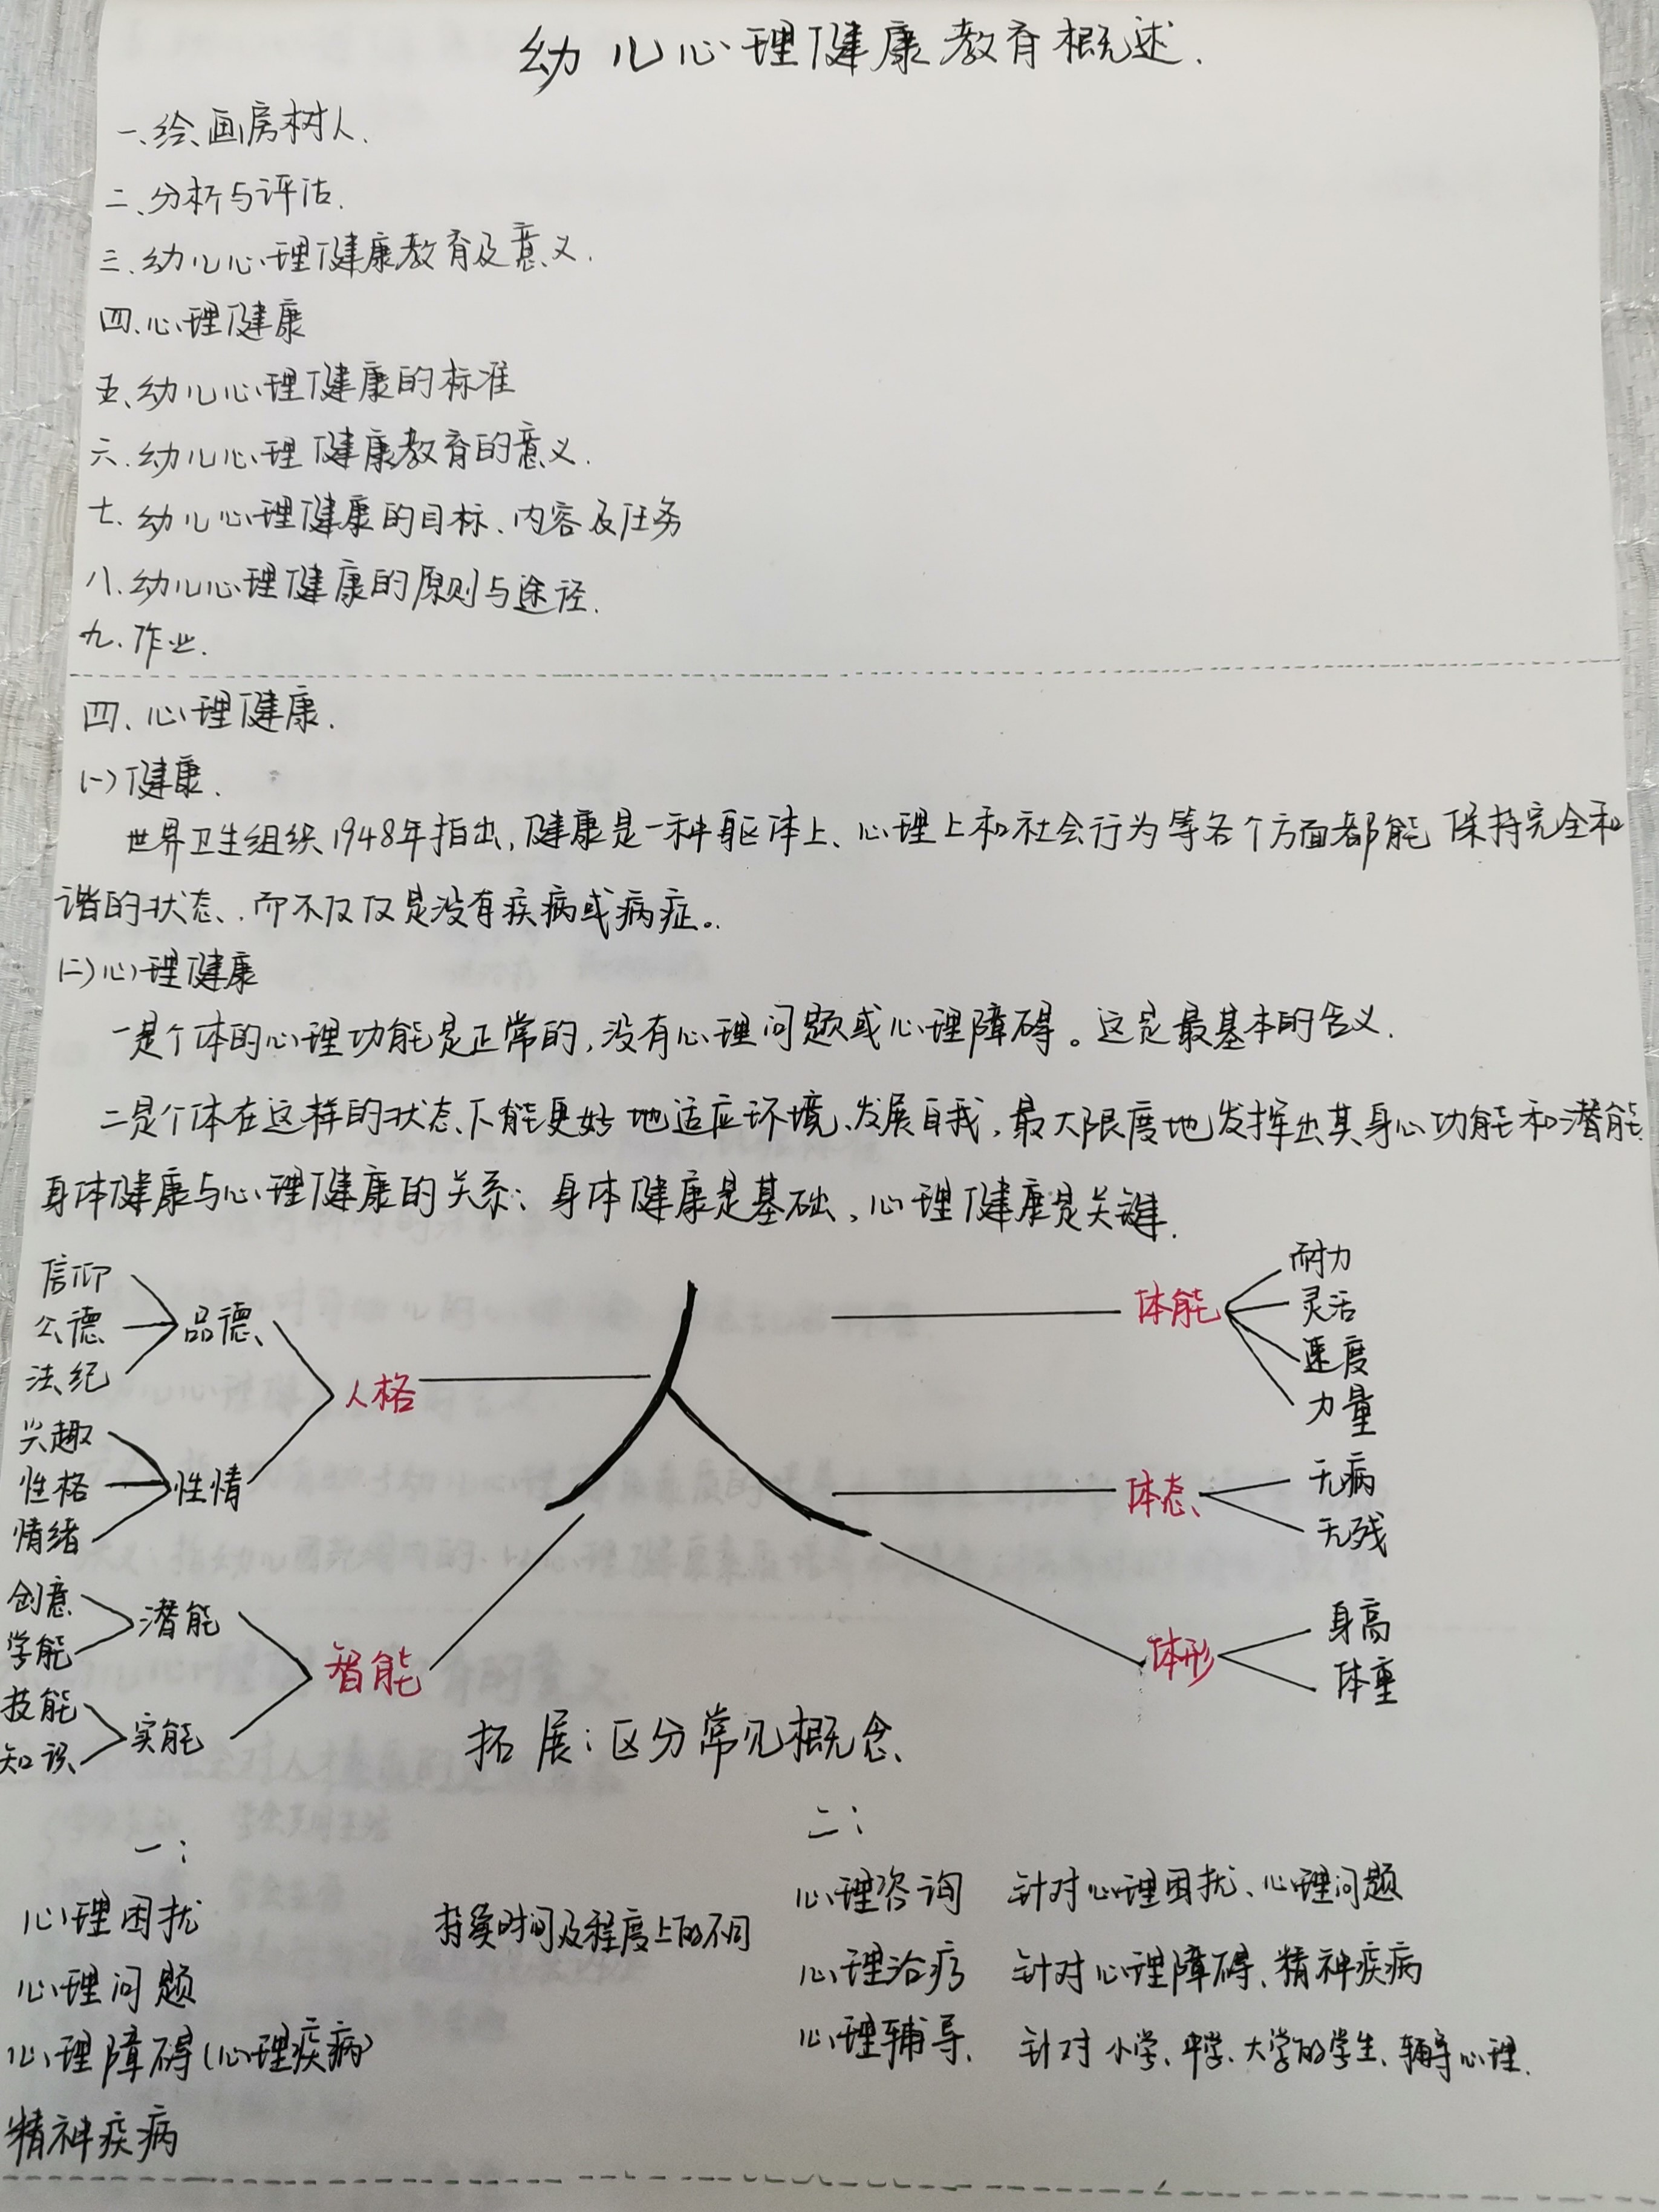 幼儿心理健康教育概述.
一、绘画房树人.
二、分析与评估.
三.幼儿心理健康教育及意义.
四.心理健康
五、幼儿心理健康的标准
六.幼儿心理健康教育的意义.
七.幼儿心理健康的目标、内容及任务
八.幼儿心理健康的原则与途径.
九.作业.
四、心理健康.
(一)健康.
世界卫生组织1948年指出,健康是一种躯体上、心理上和社会行为等各个方面都能保持完全和
谐的状态、而不仅仅是没有疾病或病症。
(二)心理健康
一是个体的心理功能是正常的,没有心理问题或心理障碍。这是最基本的含义.
二是个体在这样的状态下能更好地适应环境、发展自我,最大限度地发挥出其身心功能和潜能.
身体健康与心理健康的关系:身体健康是基础,心理健康是关键.
信仰
公德
法纪
品德
兴趣
性格
情绪
性情
人格
创意
学能
潜能
技能
知识
实能
智能
体能
耐力
灵活
速度
力量
体态
无病
无残
体形
身高
体重
拓展:区分常见概念
一:
心理困扰
心理问题
心理障碍(心理疾病)
精神疾病
持续时间及程度上的不同
二:
心理咨询 针对心理困扰、心理问题
心理治疗 针对心理障碍、精神疾病
心理辅导 针对小学、中学、大学的学生、辅导心理.